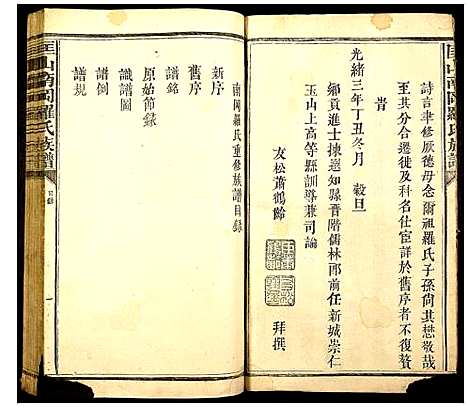 匡山南岡羅氏族譜
詩言聿修厥德毋念爾祖羅氏子孫尙其懋敬哉
至其分合遷徙及科名仕宦詳於舊序者不復贅
光緒三年丁丑冬月 穀旦
鄉貢進士揀選知縣晉階儒林郎前任新城崇仁
玉山上高等縣訓導兼司諭
友松蕭鶴齡
拜撰
南岡羅氏重修族譜目錄
新序
舊序
譜銘
原始節錄
譜圖
譜例
譜規
匡山南岡羅氏族譜
目錄
一